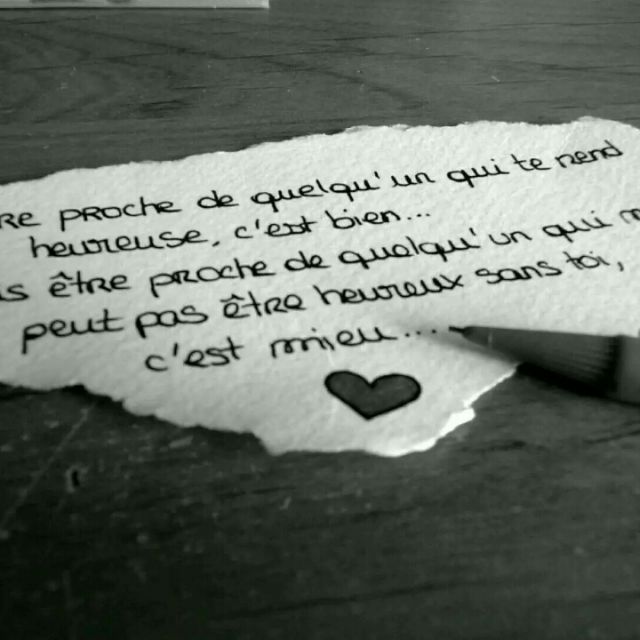 re proche de quelqu'un qui te rend
heureuse, c'est bien...
s être proche de quelqu'un qui
peut pas être heureux sans toi,
c'est mieu....